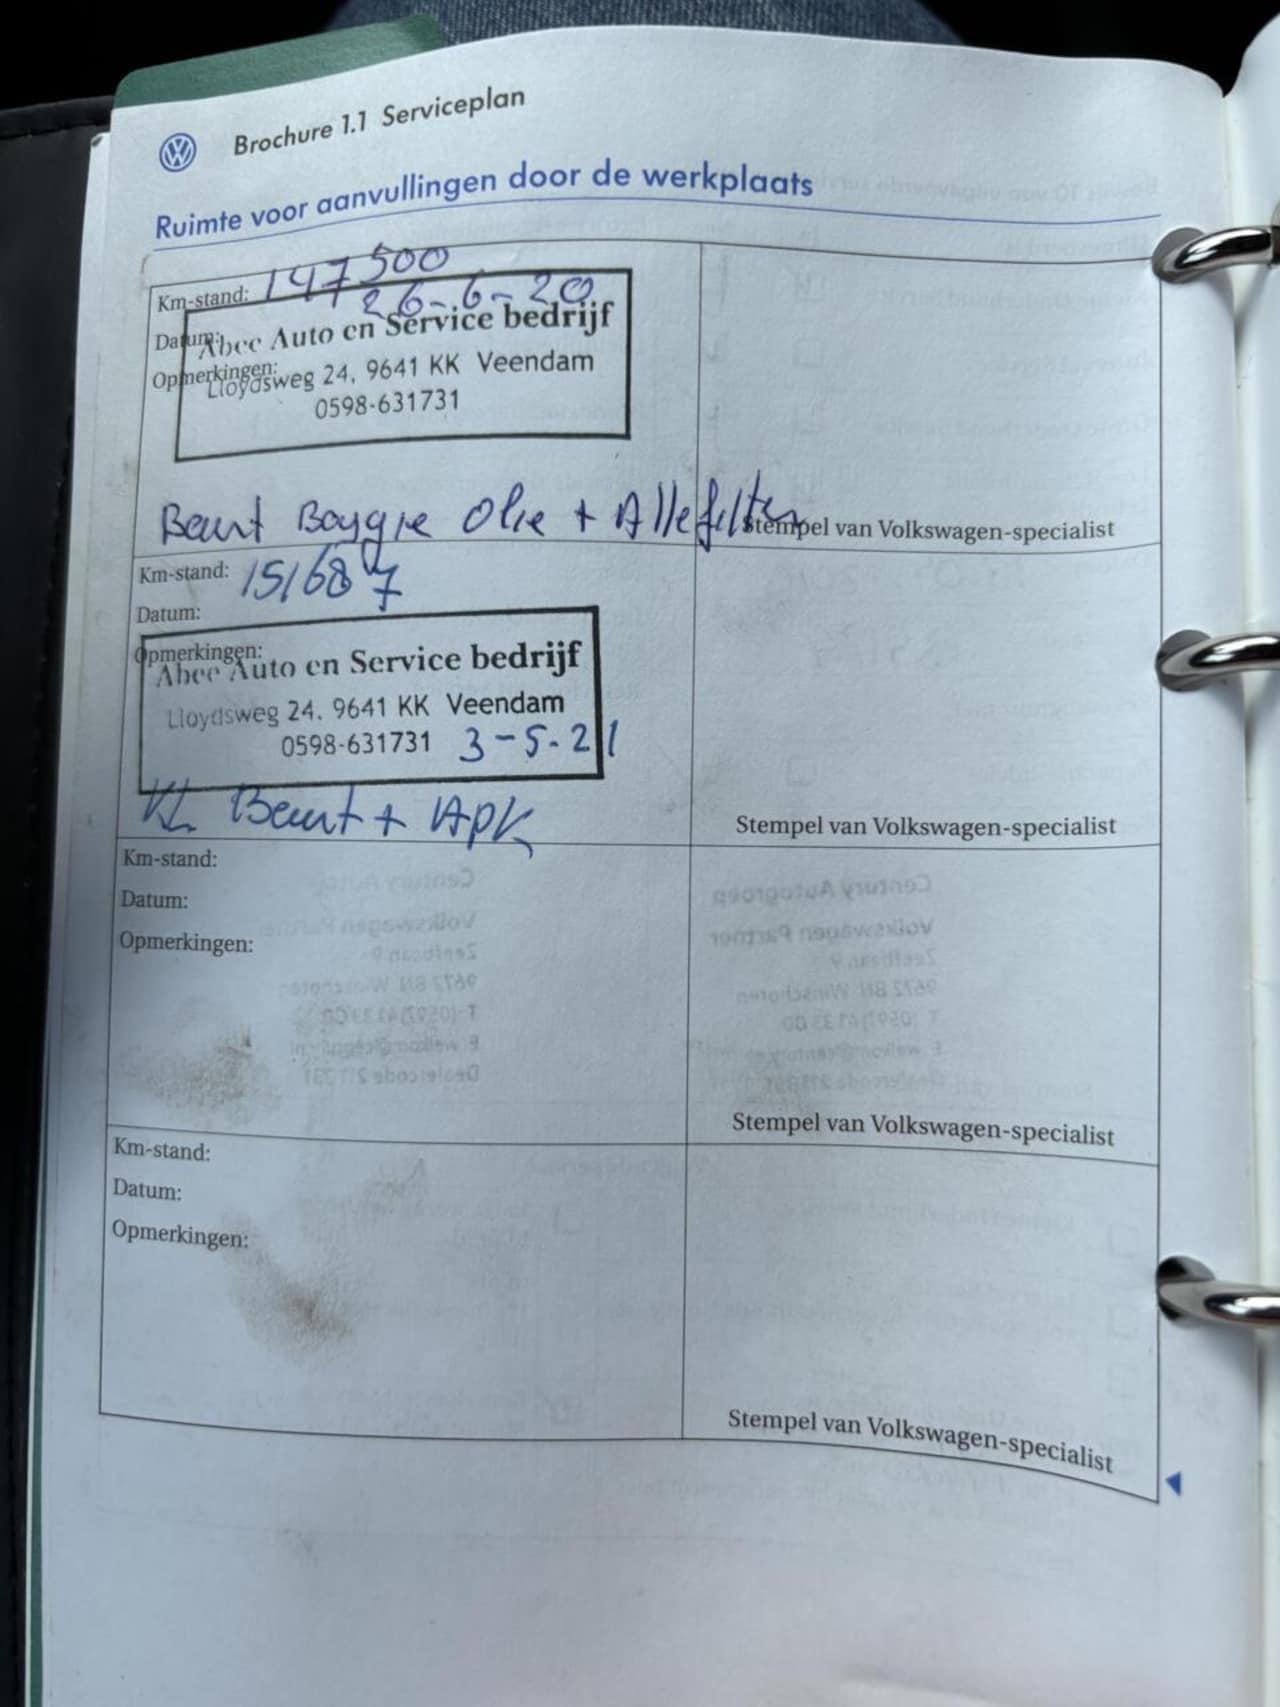 Brochure 1.1 Serviceplan
Ruimte voor aanvullingen door de werkplaats
Km-stand: 147500
Datum: 26-6-20
Abee Auto en Service bedrijf
Opmerkingen:
Lloydsweg 24, 9641 KK Veendam
0598-631731
Beurt Boygie Olie + Alle filter
Stempel van Volkswagen-specialist
Km-stand: 151687
Datum:
Opmerkingen:
Abee Auto en Service bedrijf
Lloydsweg 24. 9641 KK Veendam
0598-631731 3-5-21
KL Beurt + APK
Stempel van Volkswagen-specialist
Km-stand:
Datum:
Opmerkingen:
Stempel van Volkswagen-specialist
Km-stand:
Datum:
Opmerkingen:
Stempel van Volkswagen-specialist